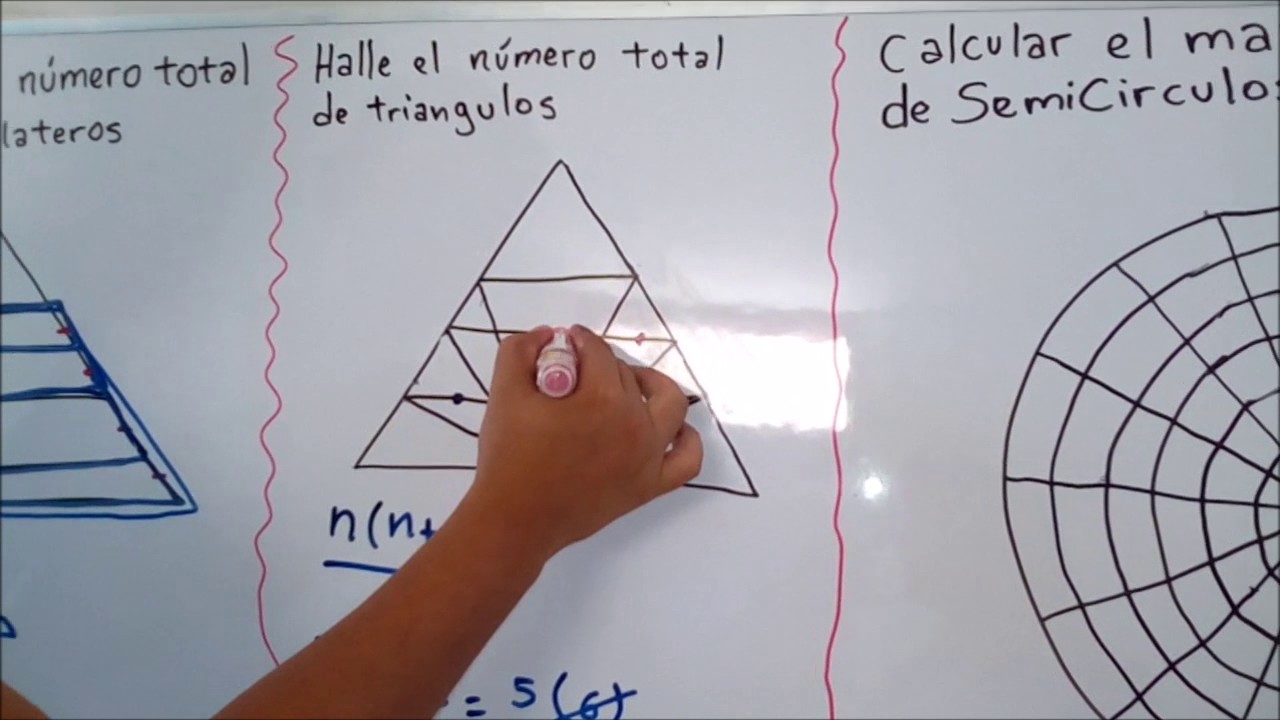 número total
lateros
Halle el número total
de triangulos
Calcular el ma
de SemiCirculos
n(n+
= 5(6)